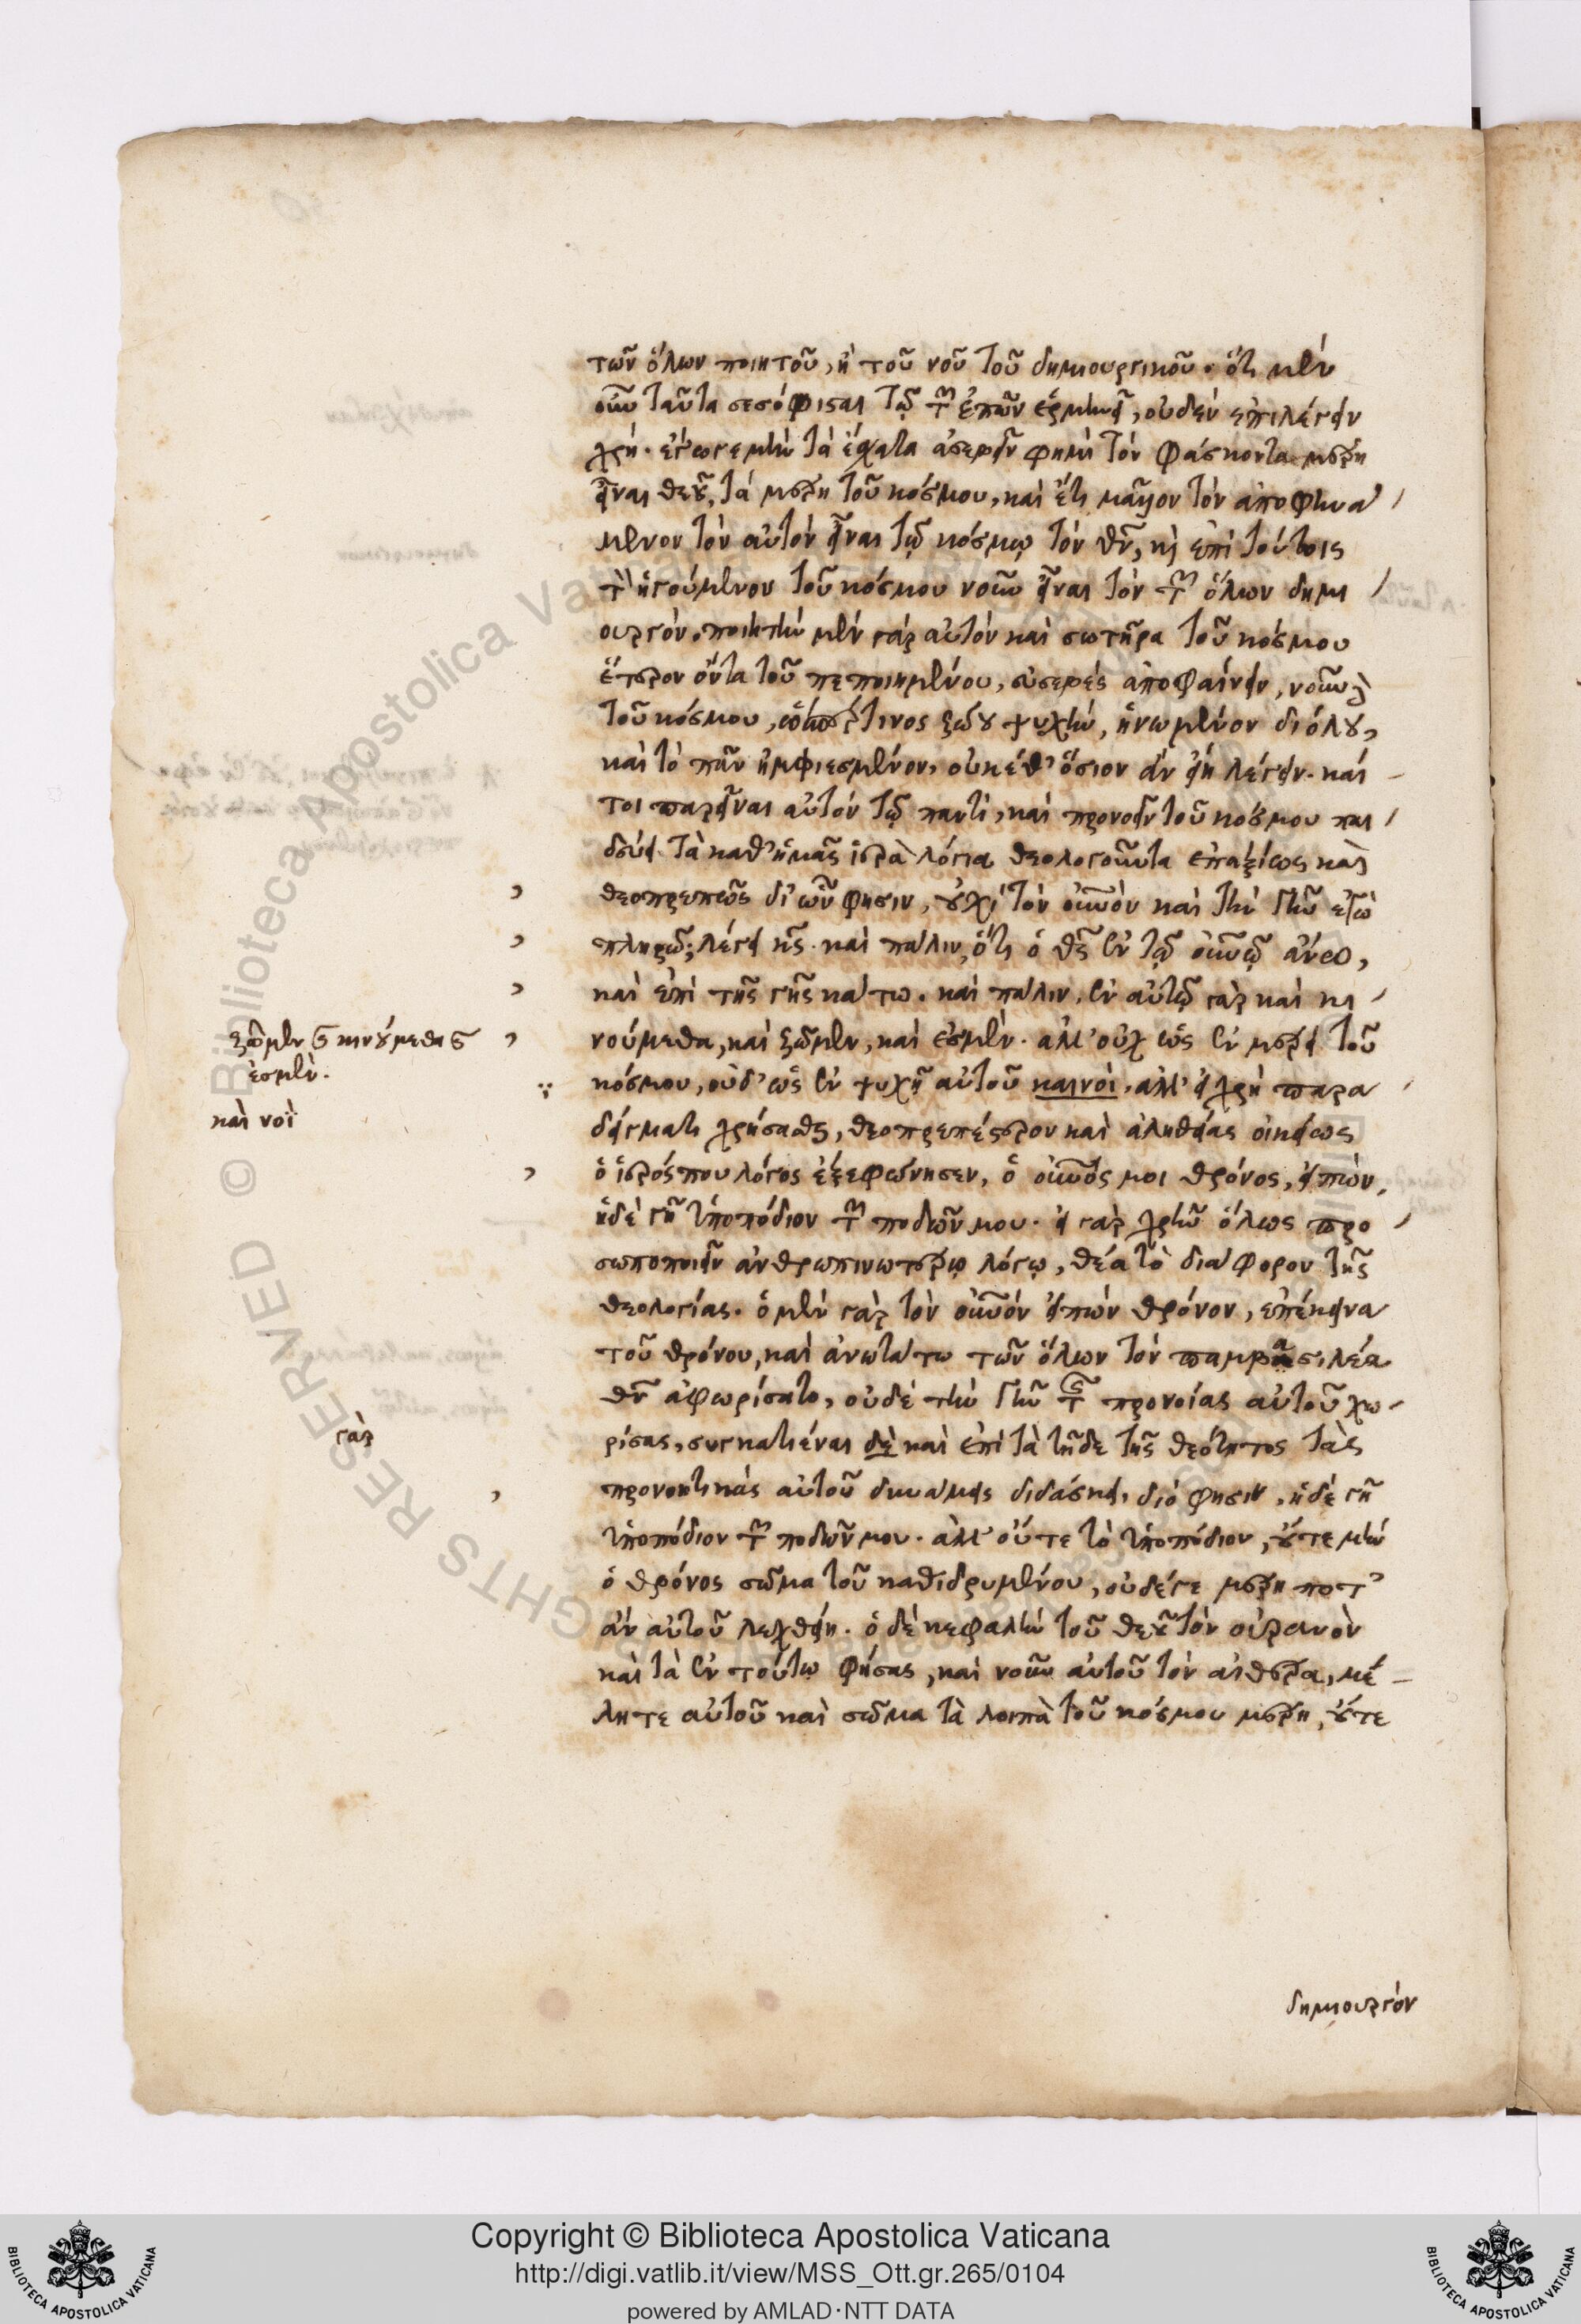 τῶν ὅλων ποιητοῦ, ἢ τοῦ νοῦ τοῦ δημιουργικοῦ. ὅτι μὲν
οὖν ταῦτα σεσόφισται τῷ τῶν ἐπῶν ἑρμηνεῖ, οὐδὲν ἐπιλέγειν
χρή. ἔγωγε μὴν τὰ ἔσχατα ἀσεβεῖν φημὶ τὸν φάσκοντα μέρη
εἶναι θεοῦ, τὰ μέρη τοῦ κόσμου, καὶ ἔτι μᾶλλον τὸν ἀποφηνά
μενον τὸν αὐτὸν εἶναι τῷ κόσμῳ τὸν θν, κὶ ἐπὶ τούτοις
τὸ ἡγούμενον τοῦ κόσμου νοῦν εἶναι τὸν τῶν ὅλων δημι
ουργόν. ποιητὴν μὲν γὰρ αὐτὸν καὶ σωτῆρα τοῦ κόσμου
ἕτερον ὄντα τοῦ πεποιημένου, εὐσεβὲς ἀποφαίνειν, νοῦν δὲ
τοῦ κόσμου, ὥσπερ τινος ζώου ψυχὴν, ἡνωμένον διόλου,
καὶ τὸ πᾶν ἠμφιεσμένον, οὐκέθ' ὅσιον ἂν εἴη λέγειν. καί
τοι παρεῖναι αὐτὸν τῷ παντὶ, καὶ προνοεῖν τοῦ κόσμου παι
δεύει τὰ καθ' ἡμᾶς ἱερὰ λόγια θεολογοῦντα ἐπαξίως καὶ
θεοπρεπῶς δι' ὧν φησιν, οὐχὶ τὸν οὐνὸν καὶ τὴν γῆν ἐγὼ
πληρῶ; λέγει κς. καὶ πάλιν, ὅτι ὁ θς ἐν τῷ οὐνῷ ἄνω,
καὶ ἐπὶ τῆς γῆς κάτω. καὶ πάλιν, ἐν αὐτῷ γὰρ καὶ κι
νούμεθα, καὶ ζῶμεν, καὶ ἐσμὲν. ἀλλ' οὐχ ὡς ἐν μέρει τοῦ
ζῶμεν καὶ κινούμεθα καὶ
ἐσμὲν.
κόσμου, οὐδ' ὡς ἐν ψυχῇ αὐτοῦ καινοὶ, ἀλλ' εἰ χρὴ παρα
καὶ νοῒ
δείγματι χρήσασθαι, θεοπρεπέστερον καὶ ἀληθείας οἰκείως
ὁ ἱερός που λόγος ἐξεφώνησεν, ὁ οὐνός μοι θρόνος, εἰπὼν,
ἡ δὲ γῆ ὑποπόδιον τῶν ποδῶν μου. εἰ γὰρ χρῆν ὅλως προ
σωποποιεῖν ἀνθρωπινωτέρῳ λόγῳ, θέα τὸ διάφορον τῆς
θεολογίας. ὁ μὲν γὰρ τὸν οὐνόν εἰπὼν θρόνον, ἐπέκεινα
τοῦ θρόνου, καὶ ἀνωτάτω τῶν ὅλων τὸν παμβασιλέα
θν ἀφωρίσατο, οὐδὲ τὴν γῆν τῆς προνοίας αὐτοῦ χω
ρίσας, συγκατιέναι δὲ καὶ ἐπὶ τὰ τῇδε τῆς θεότητος τὰς
γὰρ
προνοητικὰς αὐτοῦ δυνάμεις διδάσκει, διό φησιν, ἡ δὲ γῆ
ὑποπόδιον τῶν ποδῶν μου. ἀλλ' οὔτε τὸ ὑποπόδιον, οὔτε μὴν
ὁ θρόνος σῶμα τοῦ καθιδρυμένου, οὐδέ γε μέρη ποτ'
ἂν αὐτοῦ λεχθείη. ὁ δὲ κεφαλὴν τοῦ θεοῦ τὸν οὐρανὸν
καὶ τὰ ἐν τούτῳ φήσας, καὶ νοῦν αὐτοῦ τὸν αἰθέρα, μέ
λη τε αὐτοῦ καὶ σῶμα τὰ λοιπὰ τοῦ κόσμου μέρη, οὔτε
δημιουργόν
© Biblioteca Apostolica Vaticana
RIGHTS RESERVED
BIBLIOTECA APOSTOLICA VATICANA
Copyright © Biblioteca Apostolica Vaticana
http://digi.vatlib.it/view/MSS_Ott.gr.265/0104
powered by AMLAD·NTT DATA
BIBLIOTECA APOSTOLICA VATICANA